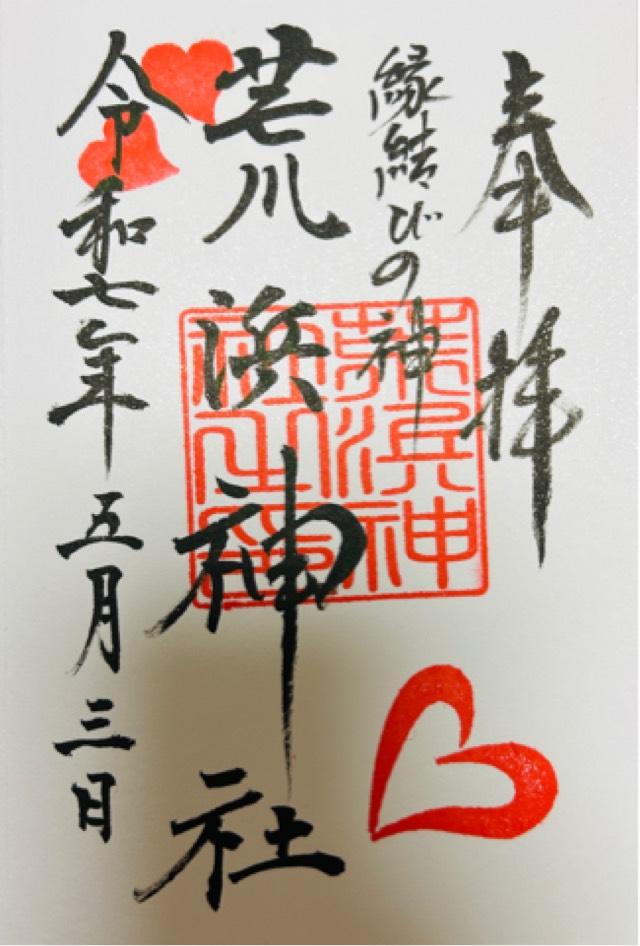 奉拝
縁結びの神
荒浜神社
令和七年五月三日
荒浜神
社之印